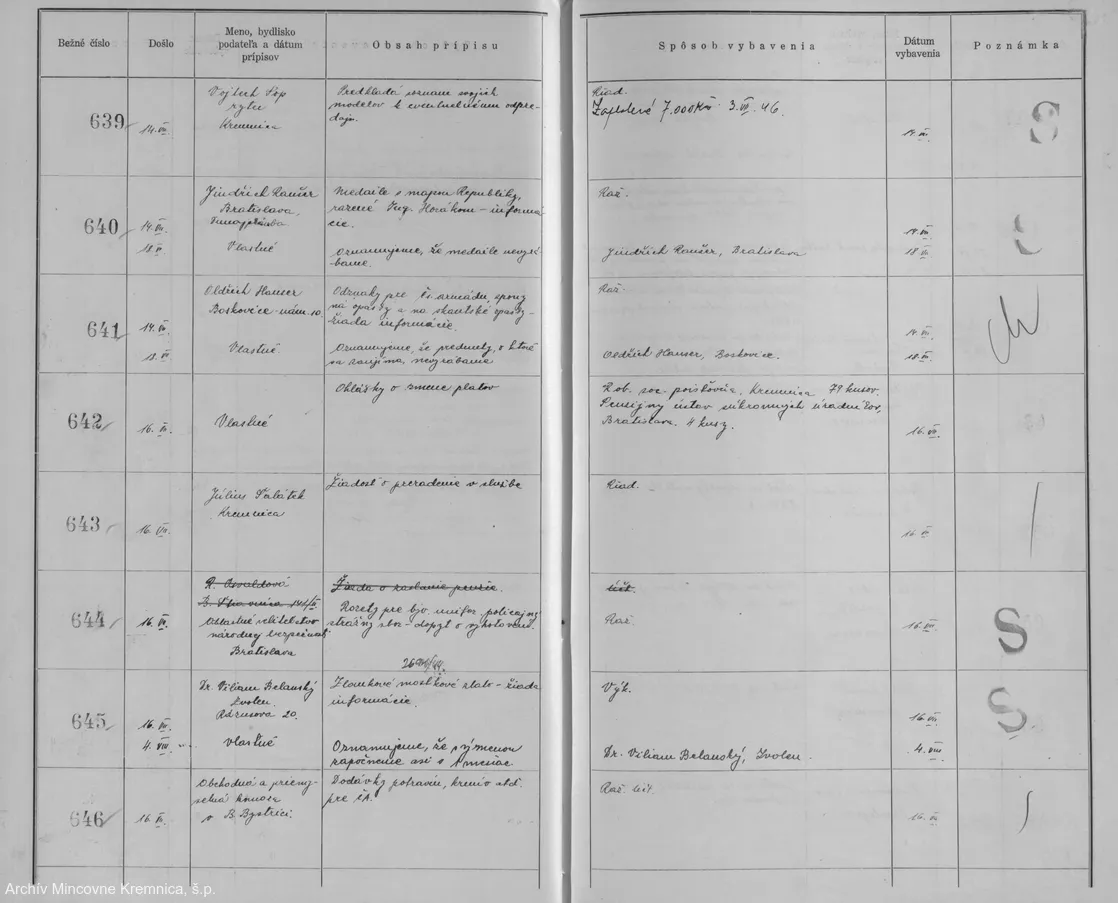 Bežné číslo
Došlo
Meno, bydlisko
podateľa a dátum
prípisov
Obsah prípisu
Spôsob vybavenia
Dátum
vybavenia
Poznámka
639
14. VII.
Vojtech
Kremnica
Predkladá soznam svojich
modelov k eventuelnému odpre-
daju.
Riad.
7.000 Kčs 3. VII. 46.
14. VII.
640
14. VII.
Jindřich Raušer
Bratislava,
Medaile s mapou Republiky,
razené Ing. Horákom – informá-
cie.
Raz.
14. VII.
18. VII.
Vlastné
Oznamujeme, že medaile nevyrá-
bame.
Jindřich Raušer, Bratislava
18. VII.
641
14. VII.
Oldřich Hauser
Boskovice - nám. 10.
Odznaky pre čs. armádu, spony
na opasky a na skautské opasky -
žiada informácie.
Raz.
14. VII.
18. VII.
Vlastné.
Oznamujeme, že predmety, o ktoré
sa zaujíma, nevyrábame.
Oldřich Hauser, Boskovice.
18. VII.
642
16. VII.
Vlastné
Ohlášky o zmene platov
Rob. soc. poisťovňa, Kremnica 79 kusov.
Penzijný ústav súkromných úradníkov,
Bratislava. 4 kusy.
16. VII.
643
16. VII.
Július Šalátek
Kremnica
Žiadosť o preradenie v službe
Riad.
16. VII.
644
16. VII.
R. Osvaldová
B. Štiavnica
Oblastné veliteľstvo
národnej bezpečnosti
Bratislava
Žiada o zaslanie
Rozety pre býv. unifor. policajný
strážny sbor – dopyt o vyhotovení.
účt.
Raz.
16. VII.
S
645
16. VII.
Dr. Viliam Belanský
Zvolen
Rázusova 20.
Zlomkové mostíkové zlato – žiada
informácie.
Výk.
16. VII.
S
4. VIII.
Vlastné
Oznamujeme, že s výmenou
započneme asi o 1 mesiac
Dr. Viliam Belanský, Zvolen.
4. VIII.
646
16. VII.
Obchodná a priemy-
selná komora
v B. Bystrici.
Dodávky potravín, krmív atď.
pre
Raz.
16. VII.
Archív Mincovne Kremnica, š.p.